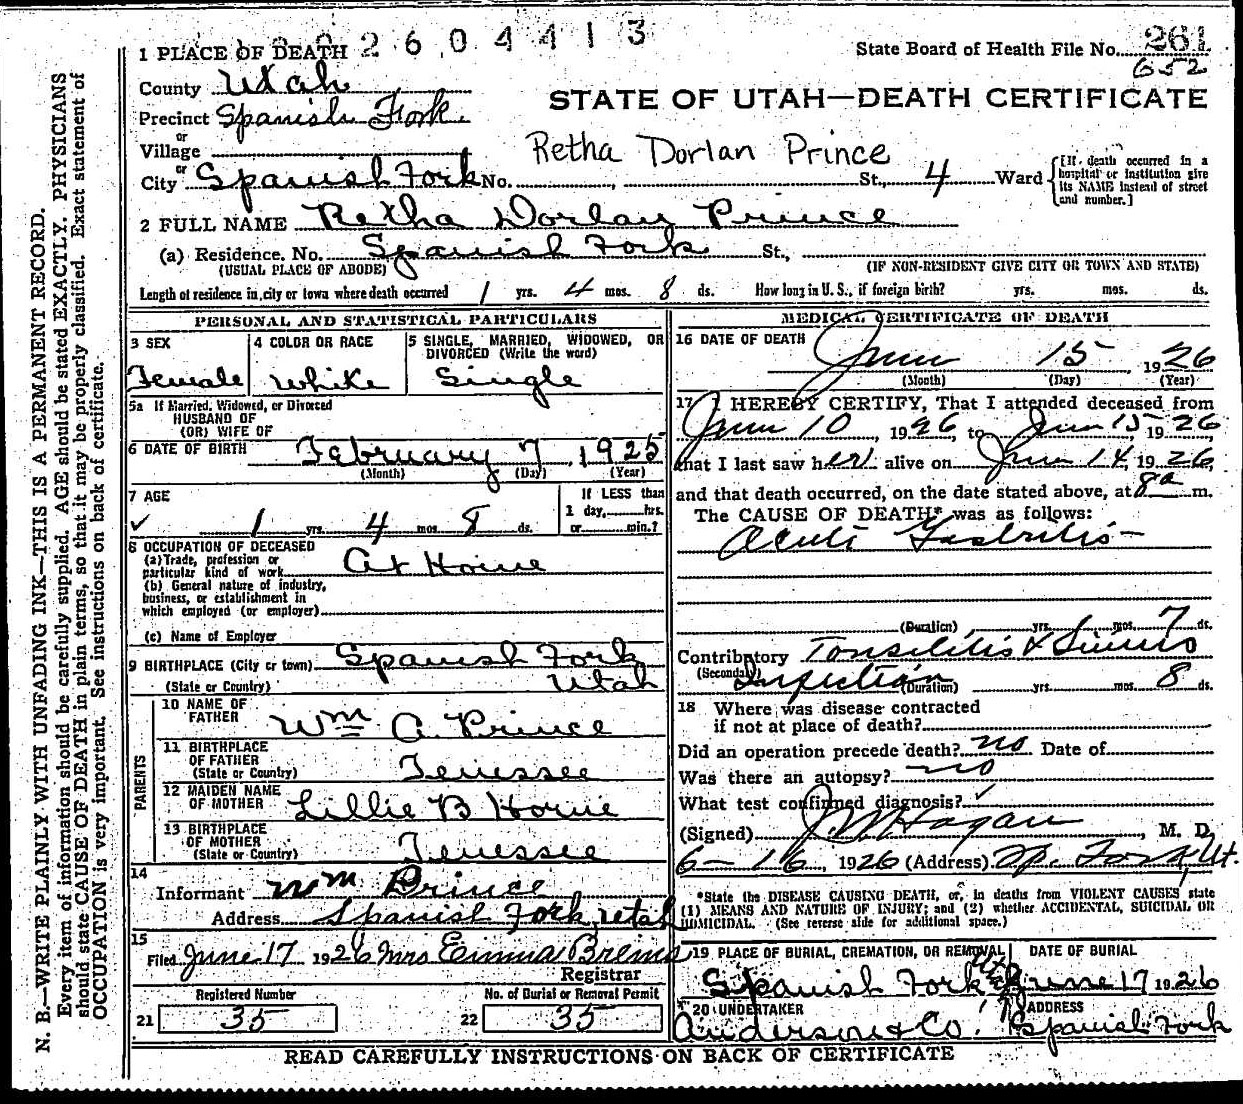 N. B.—WRITE PLAINLY WITH UNFADING INK—THIS IS A PERMANENT RECORD.
Every item of information should be carefully supplied. AGE should be stated EXACTLY. PHYSICIANS
should state CAUSE OF DEATH in plain terms, so that it may be properly classified. Exact statement of
OCCUPATION is very important. See instructions on back of certificate.
2604413
State Board of Health File No. 261
652
1 PLACE OF DEATH
County Utah
STATE OF UTAH—DEATH CERTIFICATE
Precinct Spanish Fork
or
Village
Retha Dorlan Prince
or
City Spanish Fork No. , St., 4 Ward
[If death occurred in a
hospital or institution give
its NAME instead of street
and number.]
2 FULL NAME Retha Dorlan Prince
(a) Residence. No. Spanish Fork St.,
(USUAL PLACE OF ABODE) (IF NON-RESIDENT GIVE CITY OR TOWN AND STATE)
Length of residence in city or town where death occurred 1 yrs. 4 mos. 8 ds. How long in U. S., if foreign birth? yrs. mos. ds.
PERSONAL AND STATISTICAL PARTICULARS
3 SEX
Female
4 COLOR OR RACE
White
5 SINGLE, MARRIED, WIDOWED, OR
DIVORCED (Write the word)
Single
5a If Married, Widowed, or Divorced
HUSBAND OF
(OR) WIFE OF
6 DATE OF BIRTH February 7, 1925
(Month) (Day) (Year)
7 AGE
✓ 1 yrs. 4 mos. 8 ds.
If LESS than
1 day, hrs.
or min.?
8 OCCUPATION OF DECEASED
(a) Trade, profession or
particular kind of work At Home
(b) General nature of industry,
business, or establishment in
which employed (or employer)
(c) Name of Employer
9 BIRTHPLACE (City or town) Spanish Fork
(State or Country) Utah
PARENTS
10 NAME OF
FATHER Wm A. Prince
11 BIRTHPLACE
OF FATHER
(State or Country) Tenessee
12 MAIDEN NAME
OF MOTHER Lillie B Horne
13 BIRTHPLACE
OF MOTHER
(State or Country) Tenessee
14
Informant Wm Prince
Address Spanish Fork, Utah
15
Filed June 17 1926 Mrs Emma Brems
Registrar
Registered Number
21 35
No. of Burial or Removal Permit
22 35
MEDICAL CERTIFICATE OF DEATH
16 DATE OF DEATH
June 15 1926
(Month) (Day) (Year)
17 I HEREBY CERTIFY, That I attended deceased from
June 10, 1926, to June 15 1926,
that I last saw her alive on June 14, 1926,
and that death occurred, on the date stated above, at 8a m.
The CAUSE OF DEATH* was as follows:
Acute Gastritis
(Duration) yrs. mos. 7 ds.
Contributory Tonsilitis & Sinus
(Secondary) Infection
(Duration) yrs. mos. 8 ds.
18 Where was disease contracted
if not at place of death?
Did an operation precede death? no Date of
Was there an autopsy? no
What test confirmed diagnosis? ✓
(Signed) J. W. Hagan, M. D.
6-16, 1926 (Address) Sp. Fork, Ut.
*State the DISEASE CAUSING DEATH, or, in deaths from VIOLENT CAUSES, state
(1) MEANS AND NATURE OF INJURY; and (2) whether ACCIDENTAL, SUICIDAL OR
HOMICIDAL. (See reverse side for additional space.)
19 PLACE OF BURIAL, CREMATION, OR REMOVAL
Spanish Fork
DATE OF BURIAL
June 17 1926
20 UNDERTAKER
Anderson & Co.
ADDRESS
Spanish Fork
READ CAREFULLY INSTRUCTIONS ON BACK OF CERTIFICATE